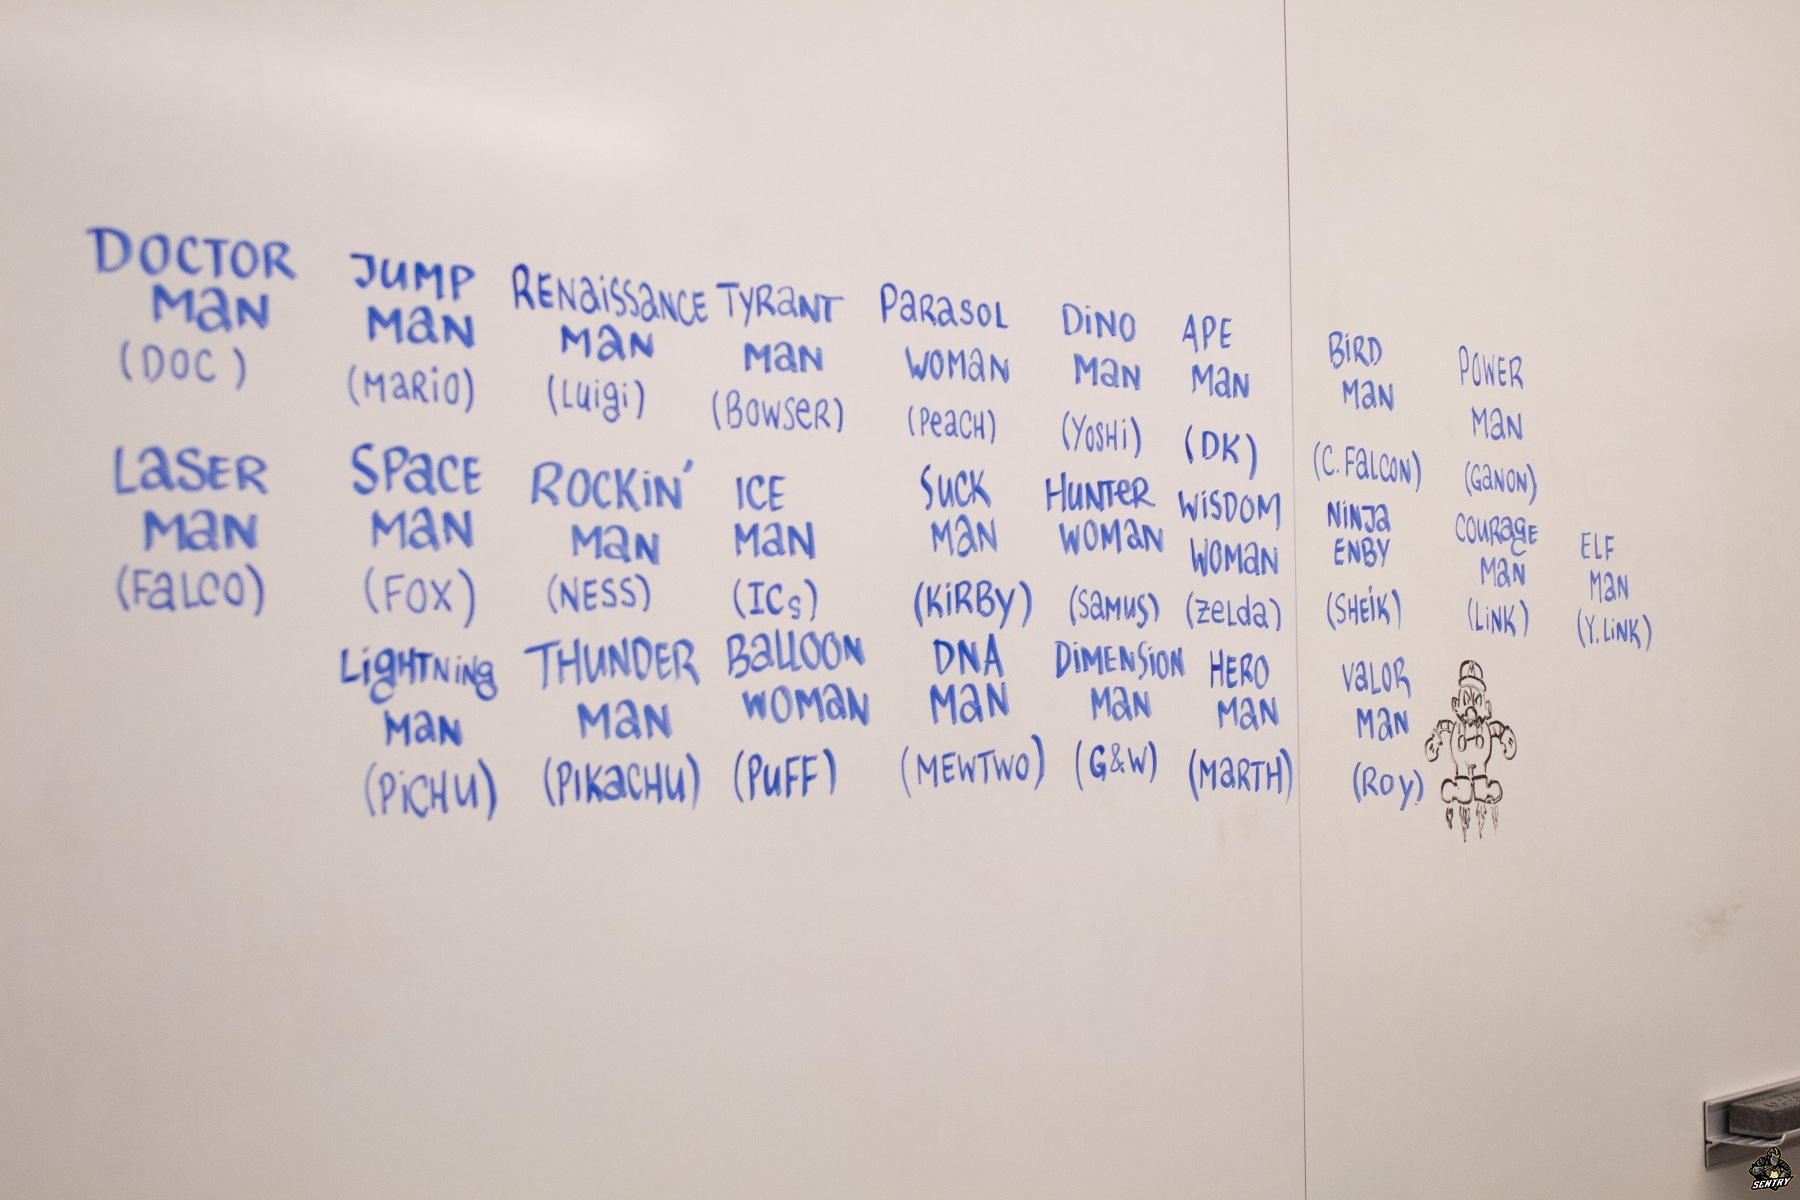 DOCTOR
MAN
(DOC)
JUMP
MAN
(MARIO)
RENAISSANCE
MAN
(LUIGI)
TYRANT
MAN
(BOWSER)
PARASOL
WOMAN
(PEACH)
DINO
MAN
(YOSHI)
APE
MAN
(DK)
BIRD
MAN
(C. FALCON)
POWER
MAN
(GANON)
LASER
MAN
(FALCO)
SPACE
MAN
(FOX)
ROCKIN'
MAN
(NESS)
ICE
MAN
(ICs)
SUCK
MAN
(KIRBY)
HUNTER
WOMAN
(SAMUS)
WISDOM
WOMAN
(ZELDA)
NINJA
ENBY
(SHEIK)
COURAGE
MAN
(LINK)
ELF
MAN
(Y. LINK)
LIGHTNING
MAN
(PICHU)
THUNDER
MAN
(PIKACHU)
BALLOON
WOMAN
(PUFF)
DNA
MAN
(MEWTWO)
DIMENSION
MAN
(G&W)
HERO
MAN
(MARTH)
VALOR
MAN
(ROY)
M
SENTRY